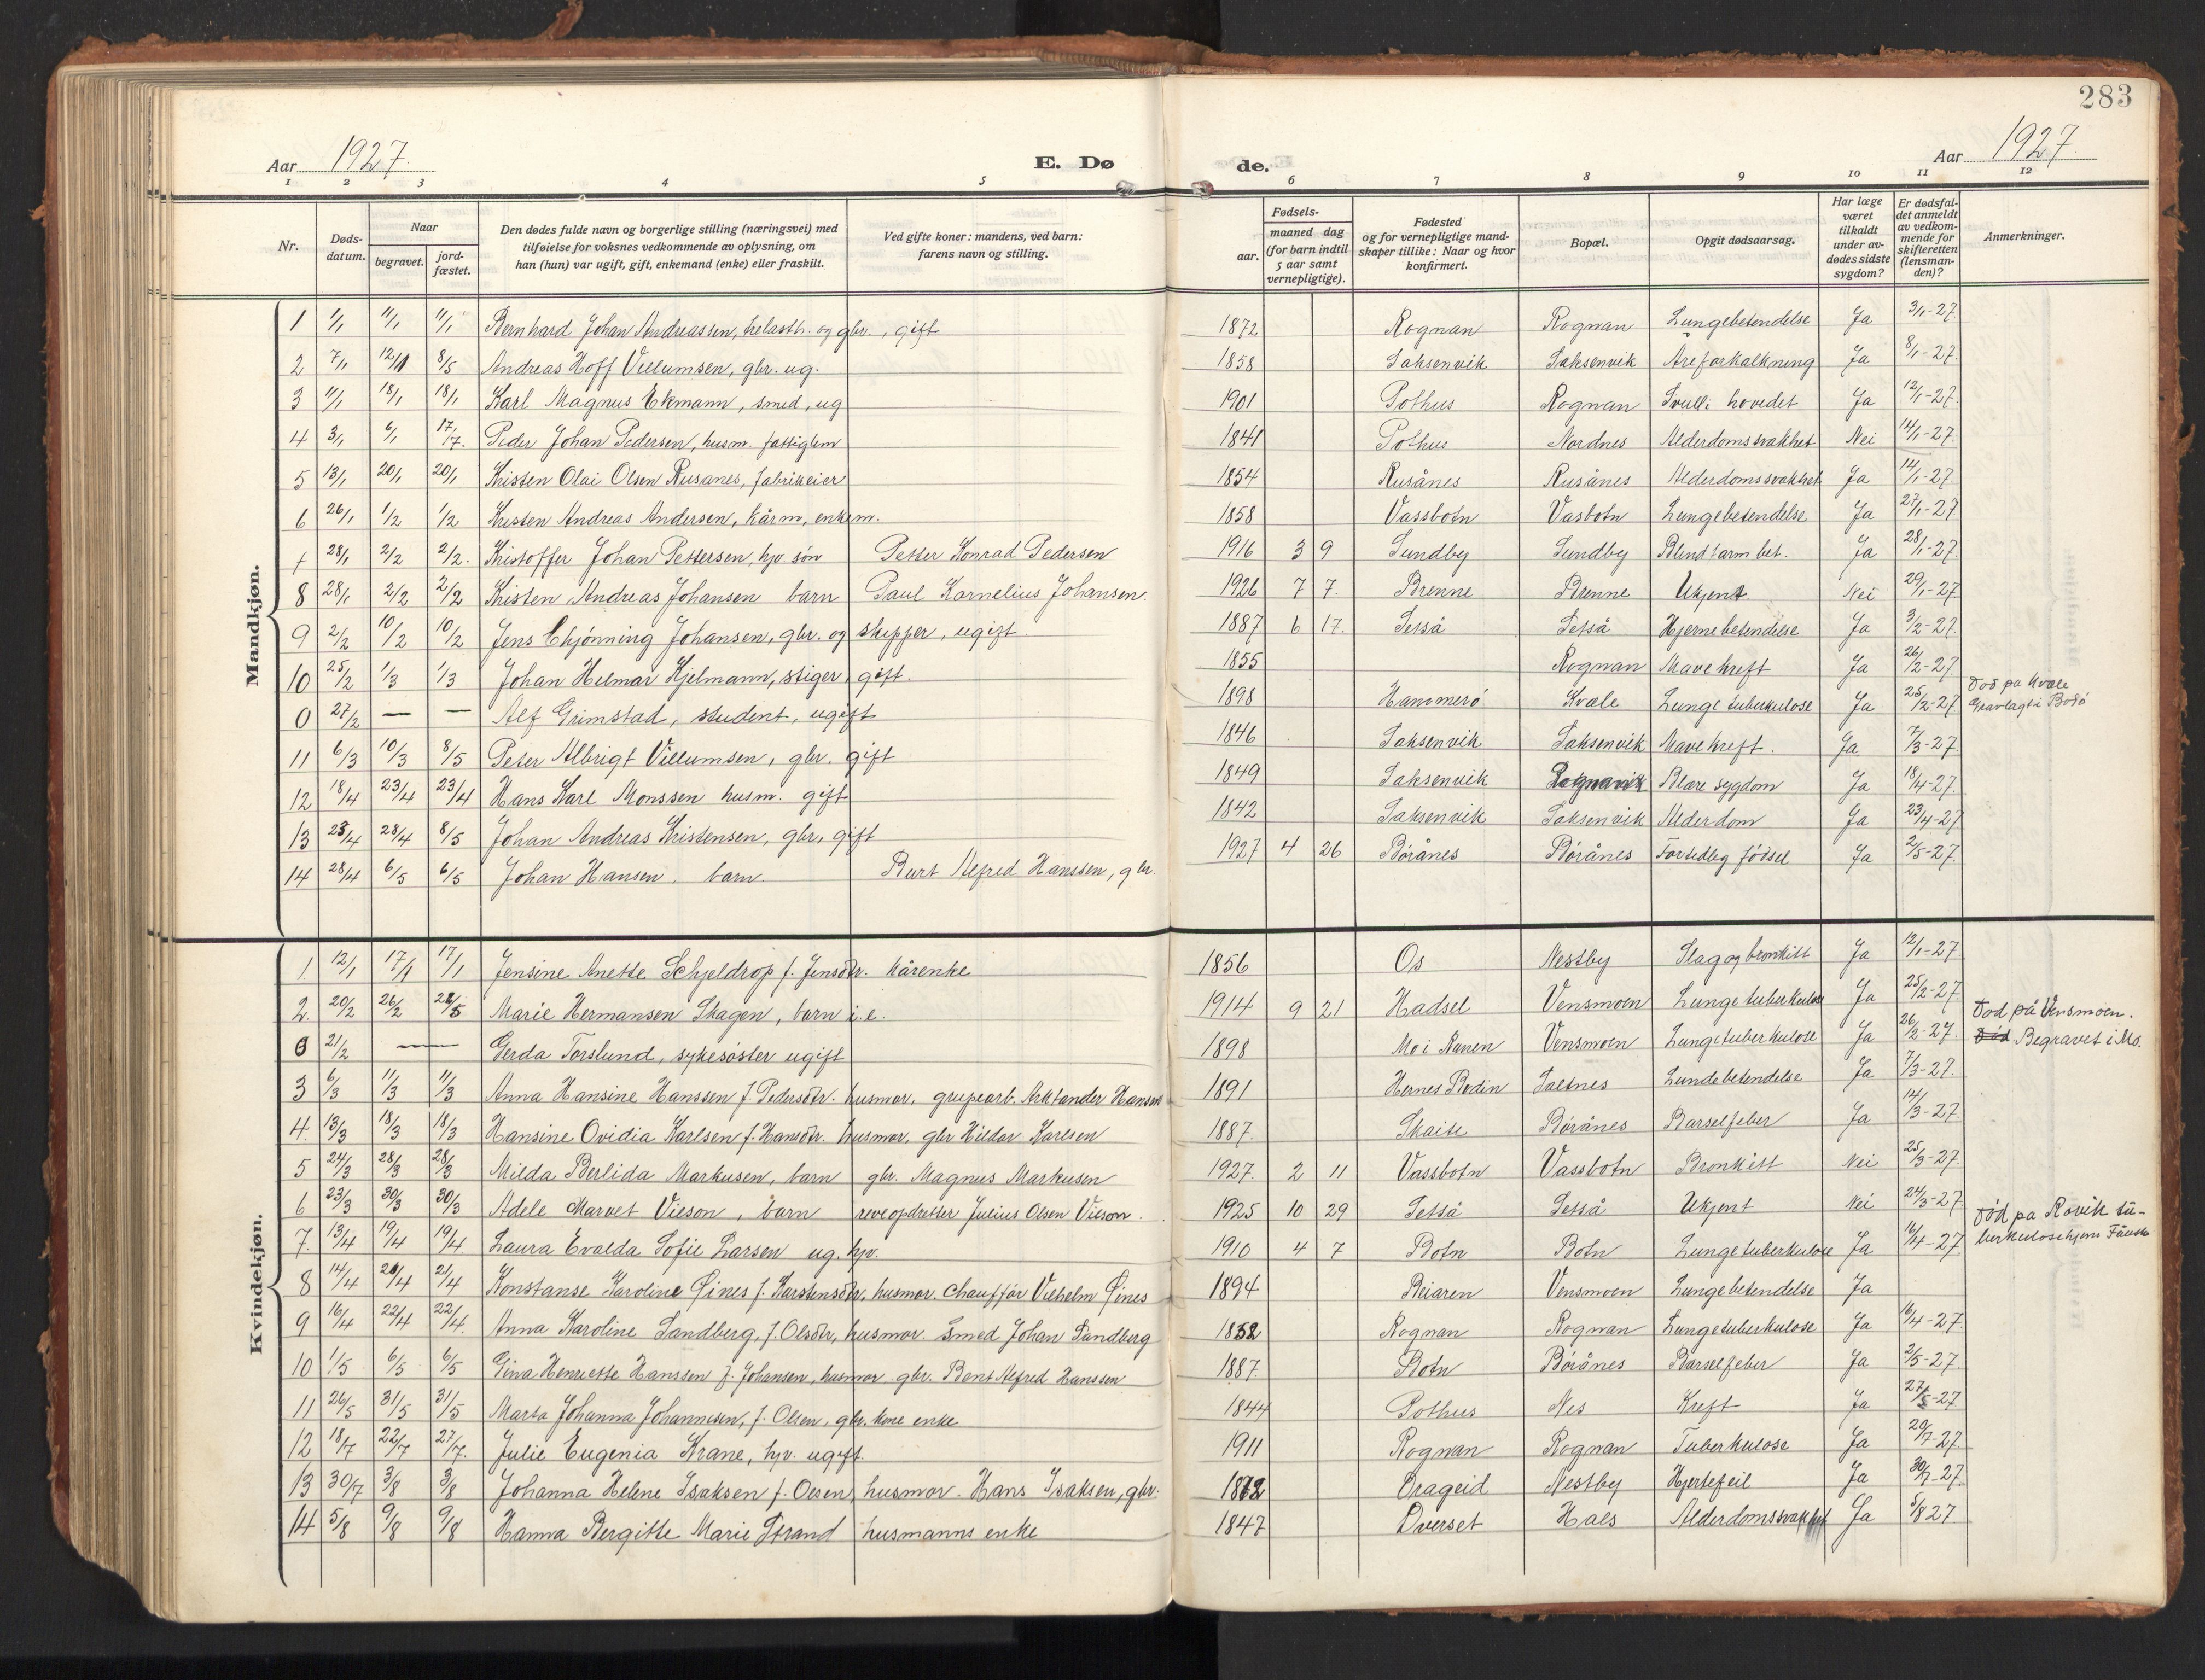 283
Aar 1927. E. Dø de. Aar 1927
1 2 3 4 5 6 7 8 9 10 11 12
Nr. Døds-datum. Naar begravet. jord-fæstet. Den dødes fulde navn og borgerlige stilling (næringsvei) med tilføielse for voksnes vedkommende av oplysning, om han (hun) var ugift, gift, enkemand (enke) eller fraskilt. Ved gifte koner: mandens, ved barn: farens navn og stilling. Fødsels- aar. maaned dag (for barn indtil 5 aar samt vernepligtige). Fødested og for vernepligtige mand-skaper tillike: Naar og hvor konfirmert. Bopæl. Opgit dødsaarsag. Har læge været tilkaldt under av-dødes sidste sygdom? Er dødsfal-det anmeldt av vedkom-mende for skifteretten (lensman-den)? Anmerkninger.
Mandkjøn.
1 1/1 11/1 11/1 Bernhard Johan Andreassen, og gbr., gift 1872 Rognan Rognan Lungebetendelse Ja 3/1-27
2 7/1 12/1 8/5 Andreas Hoff Villumsen, gbr. ug. 1858 Saksenvik Saksenvik Åreforkalkning Ja 8/1-27.
3 11/1 18/1 18/1 Karl Magnus Ekmann, smed, ug 1901 Pothus Rognan Svull i hovedet Ja 12/1-27.
4 3/1 6/1 17/7. Peder Johan Pedersen, husm. fattiglem 1841 Pothus Nordnes Alderdomssvakhet Nei 14/1-27.
5 13/1 20/1 20/1 Kristen Olai Olsen Rusanes, fabrikeier 1854 Rusånes Rusånes Alderdomssvakhet Ja 14/1-27.
6 26/1 1/2 1/2 Kristen Andreas Andersen, kårm, enkem. 1858 Vassbotn Vasbotn Lungebetendelse Ja 27/1-27
7 28/1 2/2 2/2. Kristoffer Johan Pettersen, hjv søn Petter Konrad Pedersen 1916 3 9 Sundby Sundby Blindtarm bet. Ja 28/1-27.
8 28/1 2/2 2/2 Kristen Andreas Johansen barn Paul Kornelius Johansen. 1926 7 7. Brenne Brenne Ukjent Nei 29/1-27
9 2/2 10/2 10/2 Jens Chjønning Johansen, gbr. og skipper, ugift. 1887 6 17. Setså Setså Hjernebetendelse Ja 3/2-27.
10 25/2 1/3 1/3 Johan Hilmar Hjelmann, stiger, gift. 1855 Rognan Mavekreft Ja 26/2-27
0 27/2 — — Alf Grimstad, student, ugift 1898 Hammerø Kvæle Lungetuberkulose Ja 25/2-27 Død på Kvæle Gravlagt i Bodø
11 6/3 10/3 8/5 Peter Albrigt Villumsen, gbr. gift 1846 Saksenvik Saksenvik Mavekreft. Ja 7/3-27.
12 18/4 23/4 23/4 Hans Karl Monssen husm. gift 1849 Saksenvik Blære sygdom Ja 18/4-27.
13 23/4 28/4 8/5 Johan Andreas Kristensen, gbr, gift 1842 Saksenvik Saksenvik Alderdom Ja 23/4-27
14 28/4 6/5 6/5 Johan Hansen. barn. Alfred Hanssen, gbr. 1927 4 26 Børånes Børånes Fortidlig fødsel Ja 2/5-27.
Kvindekjøn.
1. 12/1 17/1 17/1 Jensine Anette Schjeldrop f. Jensdtr. kårenke 1856 Os Nestby Slag og bronkitt Ja 12/1-27
2. 20/2 26/2 28/5 Marie Hermansen Skagen, barn i.e. 1914 9 21 Hadsel Vensmoen Lungetuberkulose Ja 25/2-27 Død på Vensmoen.
0 21/2 — Gerda Torslund, sykesøster ugift 1898 Mo i Ranen Vensmoen Lungetuberkulose Ja 26/2-27. Død Begravet i Mo.
3 6/3 11/3 11/3 Anna Hansine Hanssen f. Pedersdtr. husmor, grupearb. Arktander Hansen 1891 Hernes Bodin Saltnes Lundebetendelse Ja 7/3-27.
4. 13/3 18/3 18/3 Hansine Ovidia Karlsen f. Hansdtr. husmor, gbr Hildor Karlsen 1887. Skaite Børånes Barselfeber Ja 14/3-27.
5 24/3 28/3 28/3 Milda Berlida Markusen, barn gbr. Magnus Markusen 1927. 2 11 Vassbotn Vassbotn Bronkitt Nei 25/3-27.
6 23/3 30/3 30/3 Adele Marvet Vilson, barn reveopdretter Julius Olsen Vilson. 1925 10 29 Setså Setså Ukjent Nei 24/3-27
7. 13/4 19/4 19/4 Laura Evalda Sofie Larsen ug. hjv. 1910 4 7 Botn Botn Lungetuberkulose Ja 16/4-27 Død på Rovik tu-berkulosehjem Fauske
8 14/4 20/4 21/4 Konstanse Karoline Øines f. Karstensdtr, husmor. Chauffør Vilhelm Øines 1894 Beiaren Vensmoen Lungebetendelse Ja
9 16/4 22/4 22/4. Anna Karoline Sandberg, f. Olsdtr, husmor Smed Johan Sandberg 1852 Rognan Rognan Lungetuberkulose Ja 16/4-27.
10 1/5 6/5 6/5 Gina Henriette Hanssen f. Johansen, husmor gbr. Bent Alfred Hanssen 1887. Botn Børånes Barselfeber Ja 2/5-27.
11 26/5 31/5 31/5 Marta Johanna Johannesen, f. Olsen, gbr. kone enke 1844 Pothus Nes Kreft Ja 27/5-27
12 18/7 22/7 27/7. Julie Eugenia Krane, hjv. ugift. 1911 Rognan Rognan Tuberkulose Ja 20/7-27
13 30/7 3/8 3/8 Johanna Helene Isaksen f. Olsen, husmor. Hans Isaksen, gbr. 1872 Drageid Nestby Hjertefeil Ja 30/7-27.
14 5/8 9/8 9/8 Hanna Bergitte Marie Strand husmanns enke 1847 Øverset Hals Alderdomssvakhet Ja 5/8 27.